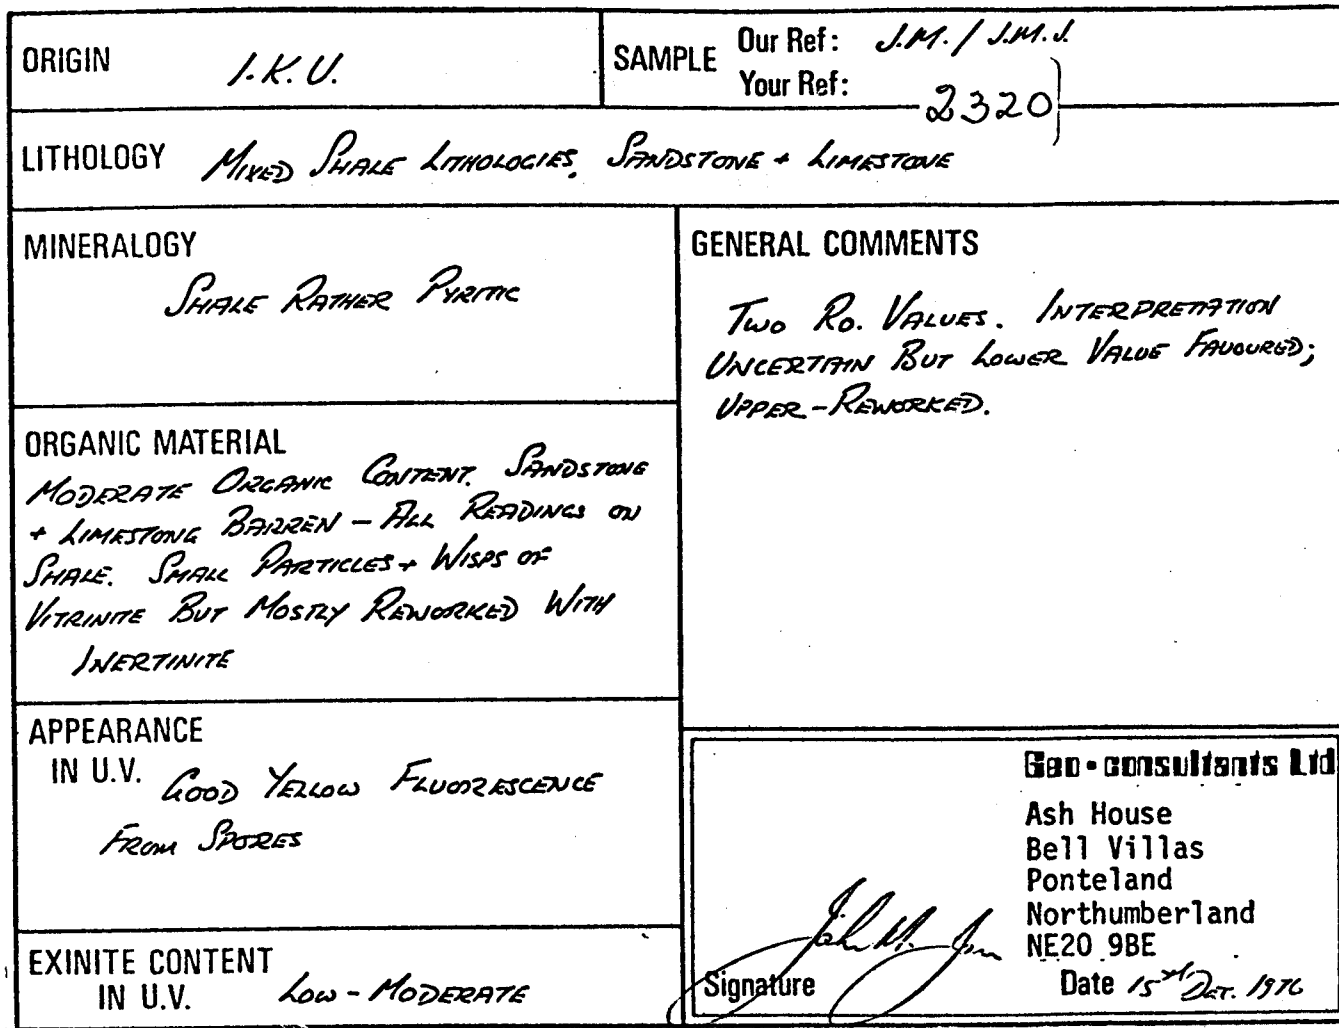 ORIGIN I.K.U.
SAMPLE Our Ref: J.M. / J.M.J.
Your Ref: 2320
LITHOLOGY MIXED SHALE LITHOLOGIES, SANDSTONE + LIMESTONE
MINERALOGY
SHALE RATHER PYRITIC
ORGANIC MATERIAL
MODERATE ORGANIC CONTENT. SANDSTONE
+ LIMESTONE BARREN - ALL READINGS ON
SHALE. SMALL PARTICLES + WISPS OF
VITRINITE BUT MOSTLY REWORKED WITH
INERTINITE
APPEARANCE
IN U.V. GOOD YELLOW FLUORESCENCE
FROM SPORES
EXINITE CONTENT
IN U.V. LOW - MODERATE
GENERAL COMMENTS
TWO RO. VALUES. INTERPRETATION
UNCERTAIN BUT LOWER VALUE FAVOURED;
UPPER - REWORKED.
Geo-consultants Ltd
Ash House
Bell Villas
Ponteland
Northumberland
NE20 9BE
Signature John M.
Date 15th 1976